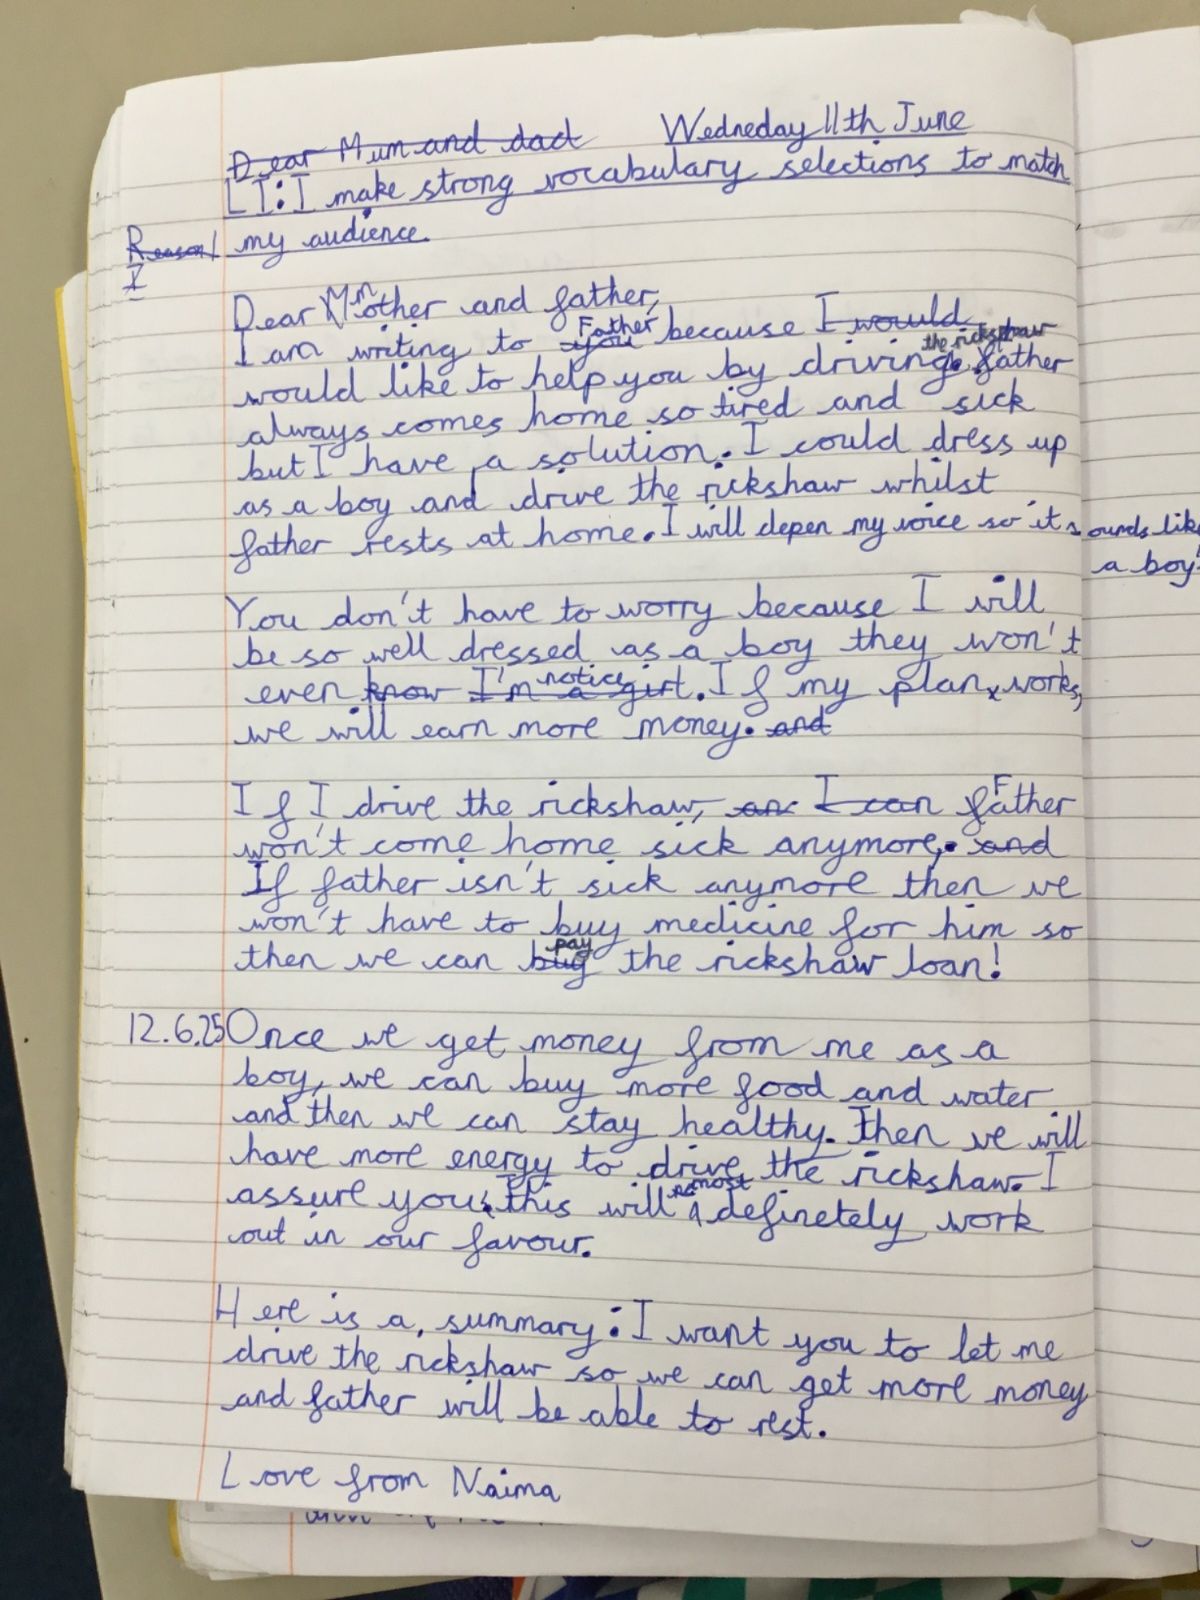 Dear Mum and dad Wedneday 11th June
LI: I make strong vocabulary selections to match
Reason/ my audience.
I
Dear Mother and father,
I am writing to you Father because I would
would like to help you by driving the rickshaw. father
always comes home so tired and sick
but I have a solution. I could dress up
as a boy and drive the rickshaw whilst
father rests at home. I will depen my voice so it sounds like
a boy!
You don't have to worry because I will
be so well dressed as a boy they won't
even know I'm a girl notice. If my plan works,
we will earn more money. and
If I drive the rickshaw, an I can Father
won't come home sick anymore. and
If father isn't sick anymore then we
won't have to buy medicine for him so
then we can buy pay the rickshaw loan!
12.6.25 Once we get money from me as a
boy, we can buy more food and water
and then we can stay healthy. Then we will
have more energy to drive the rickshaw. I
assure you, this will most definetely work
out in our favour.
Here is a summary: I want you to let me
drive the rickshaw so we can get more money
and father will be able to rest.
Love from Naima